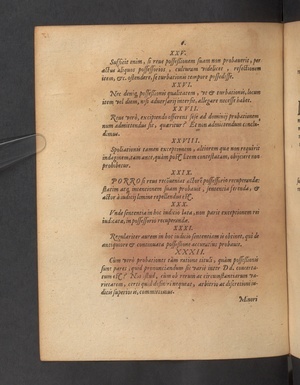 XXV.
Sufficit enim, si reus possessionem suam non probaverit, per
actus aliquos possessorios, cultorum videlicet, refectionem
item, &c. ostendere, se turbationis tempore possedisse.
XXVI.
Nec deniq; possessionis qualitatem, ut & turbationis, locum
item vel diem, nisi adversarij intersit, allegare necesse habet.
XXVII.
Reus verò, excipiendo offerens sese ad dominij probationem,
num admittendus sit, quaeritur? Et non admittendum conclu-
damus.
XXVIII.
Spoliationis tamen exceptionem, alicuius quo non requirit
indaginem, tam ante, quàm post litem contestatam, obijcere non
prohibetur.
XXIX.
PORRO si reus
statim atq; intentionem suam probavit, sententia ferenda, &
actor à
XXX.
Unde sententia in hoc iudicio lata, non parit exceptionem rei
iudicatae, in possessorio recuperandae.
XXXI.
Regulariter autem in hoc iudicio sententiam is obtinet, qui de
antiquiore & continuata possessione
XXXII.
Cùm verò probationes tàm ratione tituli, quàm possessionis
sunt pares, quid pronunciandum sit variè inter D d. concerta-
tum est? Nos illud, cùm ob rerum ac circumstantiarum va-
rietatem, certi quid definiri nequeat, arbitrio ac discretioni iu-
dicis superioris, committimus.